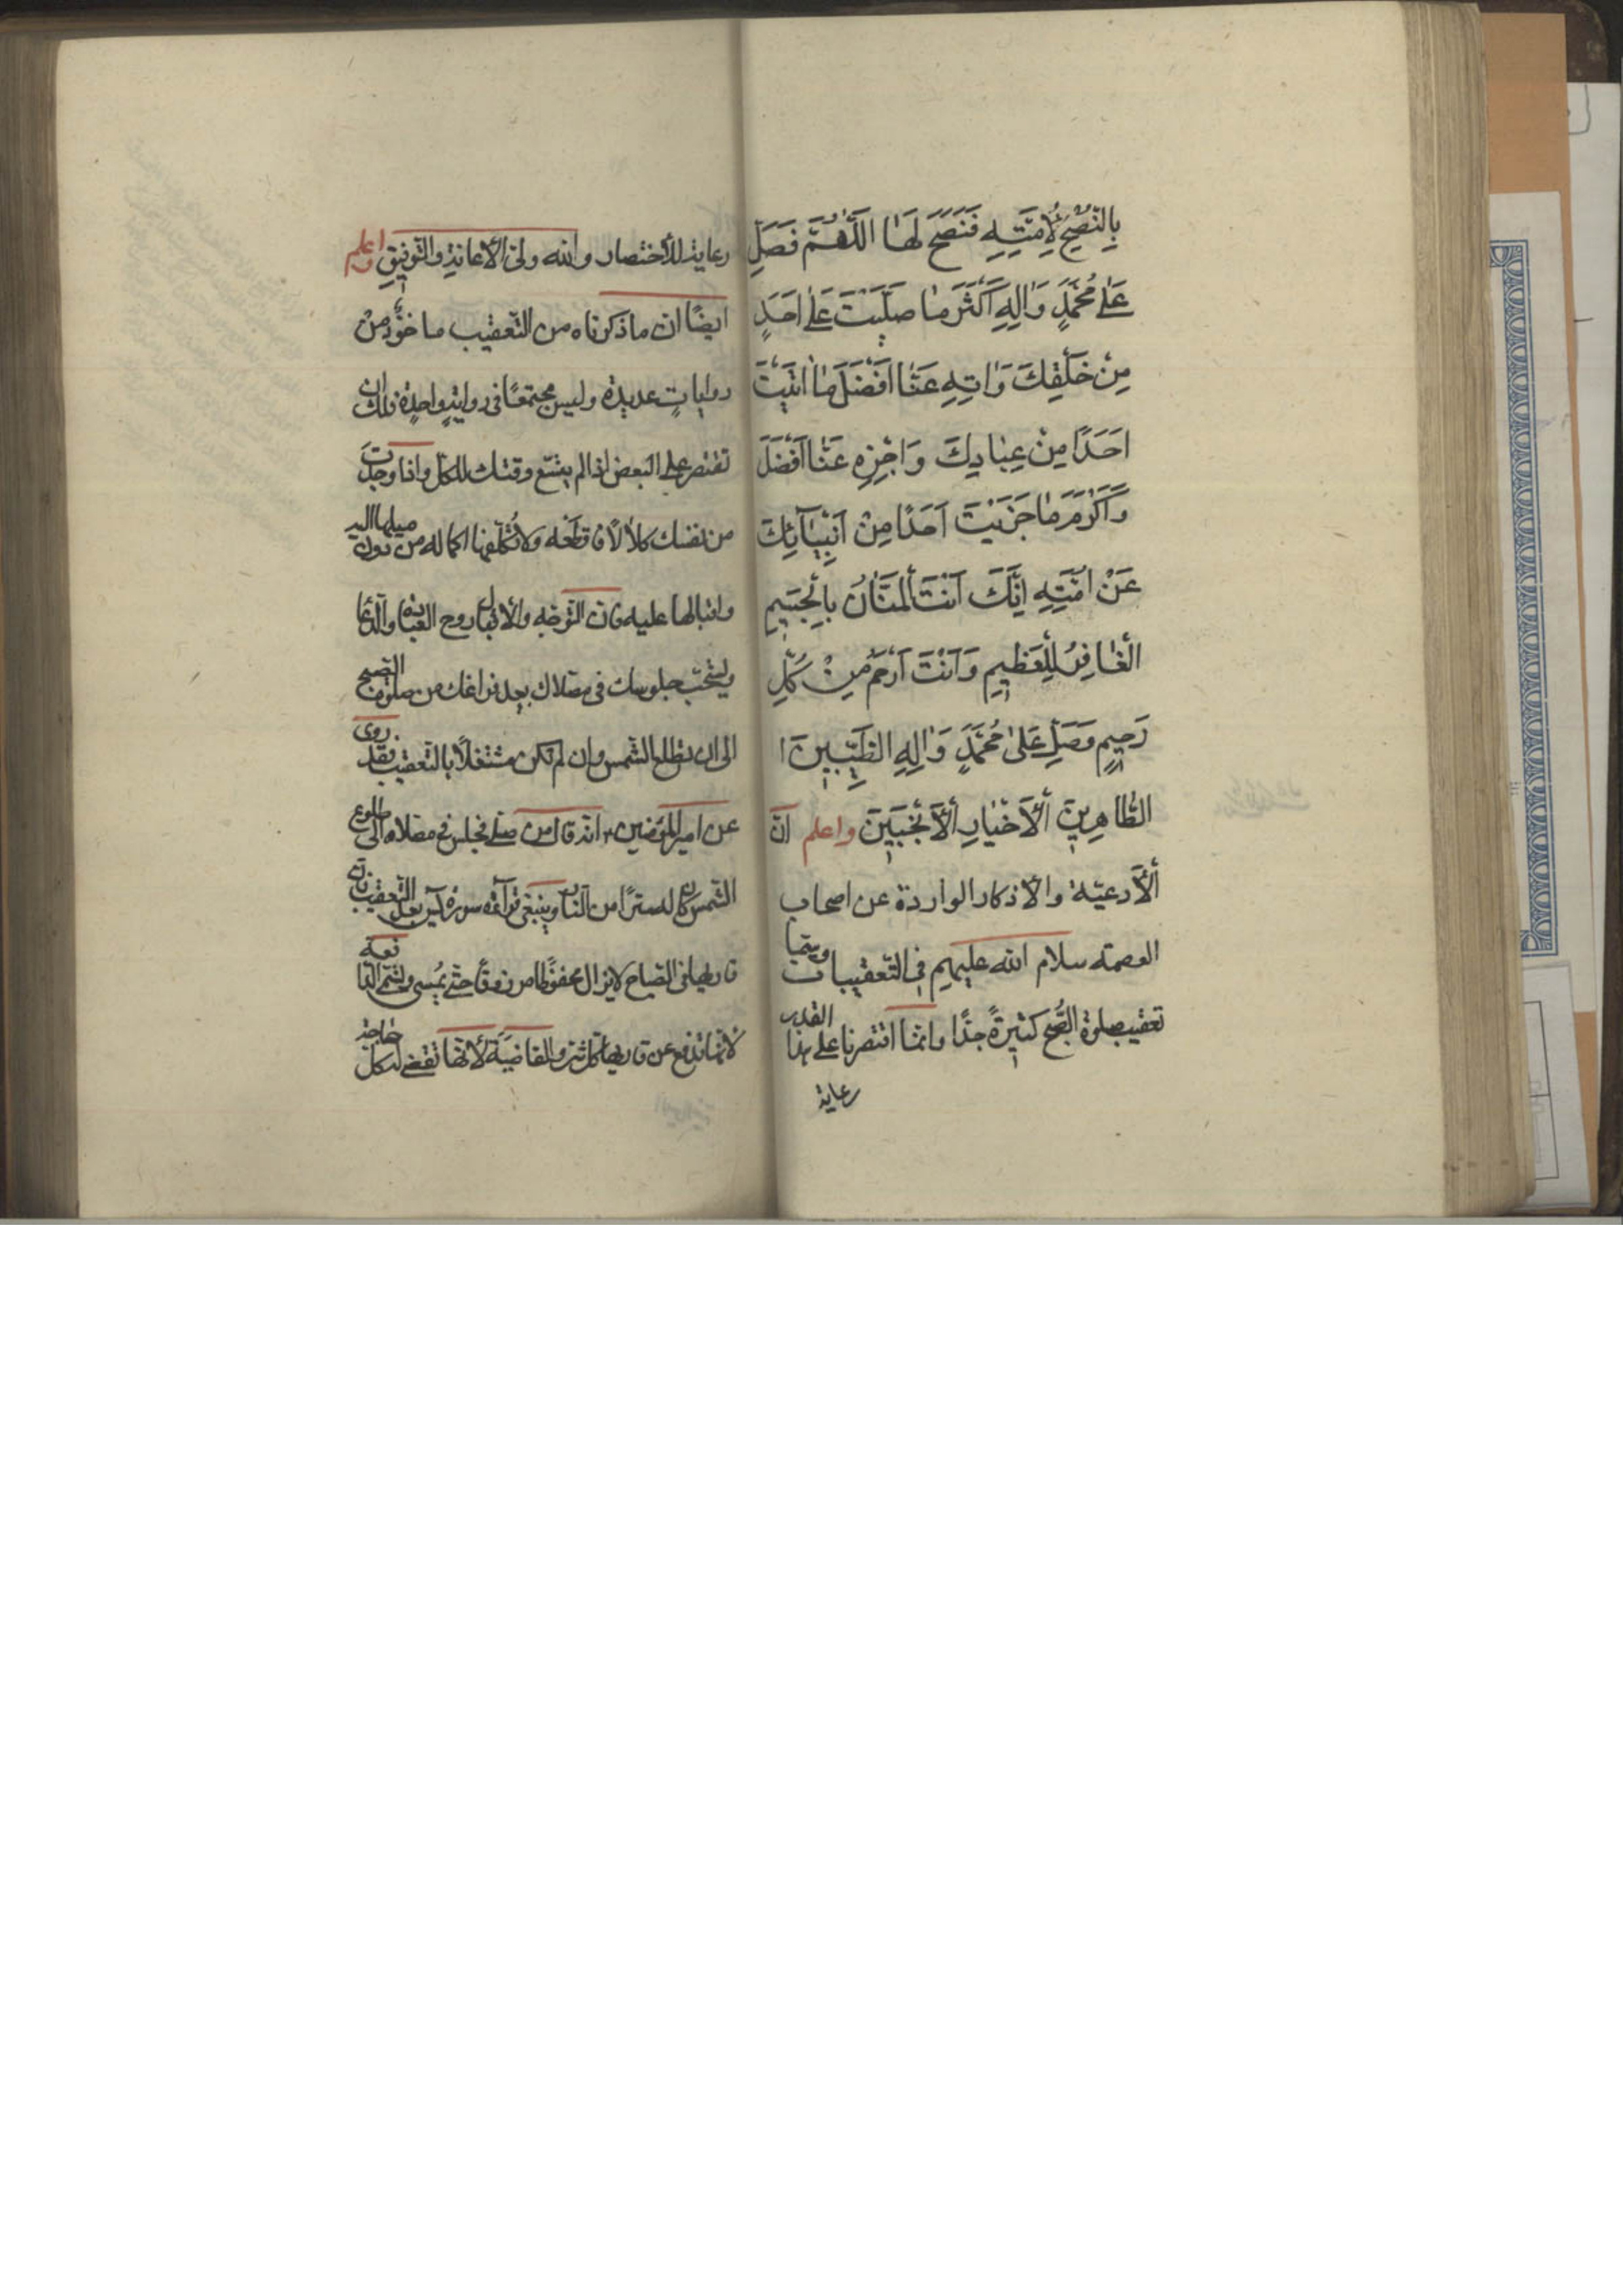 بِالنُّصْحِ لِأُمَّتِهِ فَنَصَحَ لَهَا اَللّٰهُمَّ فَصَلِّ
عَلٰى مُحَمَّدٍ وَاٰلِهِ اَكْثَرَ مَا صَلَّيْتَ عَلٰى اَحَدٍ
مِنْ خَلْقِكَ وَاٰتِهِ عَنَّا اَفْضَلَ مَا اٰتَيْتَ
اَحَدًا مِنْ عِبَادِكَ وَاجْزِهِ عَنَّا اَفْضَلَ
وَاَكْرَمَ مَا جَزَيْتَ اَحَدًا مِنْ اَنْبِيَآئِكَ
عَنْ اُمَّتِهِ اِنَّكَ اَنْتَ الْمَنَّانُ بِالْجَسِيمِ
الْغَافِرُ لِلْعَظِيمِ وَاَنْتَ اَرْحَمُ مِنْ كُلِّ
رَحِيمٍ وَصَلِّ عَلٰى مُحَمَّدٍ وَاٰلِهِ الطَّيِّبِينَ ا
الطَّاهِرِينَ الْأَخْيَارِ الْأَنْجَبِينَ واعلم انّ
الْأَدعية والأذكار الواردة عن اصحاب
العصمة سلام الله عليهم في التّعقيبات وسيّما
تعقيب صلوة الصُّبح كثيرةً جدًّا وانّما اقتصرنا على هذا القدر
رعاية
رعاية للأختصار والله ولىّ الأعانة والتّوفيق واعلم
ايضًا ان ما ذكرناه من التّعقيب ماخوُذ من
رواياتٍ عديدة وليس مجتمعًا في روايةٍ واحدةٍ فلك ان
تقتصر على البعض اذا لم يتّسع وقتك للكلّ واذا وجدت
من نفسك كلالًا فاقطعه ولا تُكلّفها اكماله من دون ميلها اليه
واقبالها عليه فان التّوجّه والأقبال روح العبادة والدّعا
ويستحبّ جلوسك في مصلاك بعد فراغك من صلوة الصّبح
الى ان تطلع الشّمس وان لم تكن مشتغلًا بالتّعقيب فقد روى
عن امير المؤمنين ع انه قال من صلّى فجلس في مصلاه الى طلوع
الشّمس كان له سترًا من النّار وينبغى قرآءة سورة يس بعد التّعقيب فان
قاريها في الصّباح لا يزال محفوظًا مرزوقًا حتّى يمُسى وتسمّى الدّافعة
لأنّها تدفع عن قاريها كلّ شرّ والقاضيَة لأنّها تقضى له كلّ حاجة